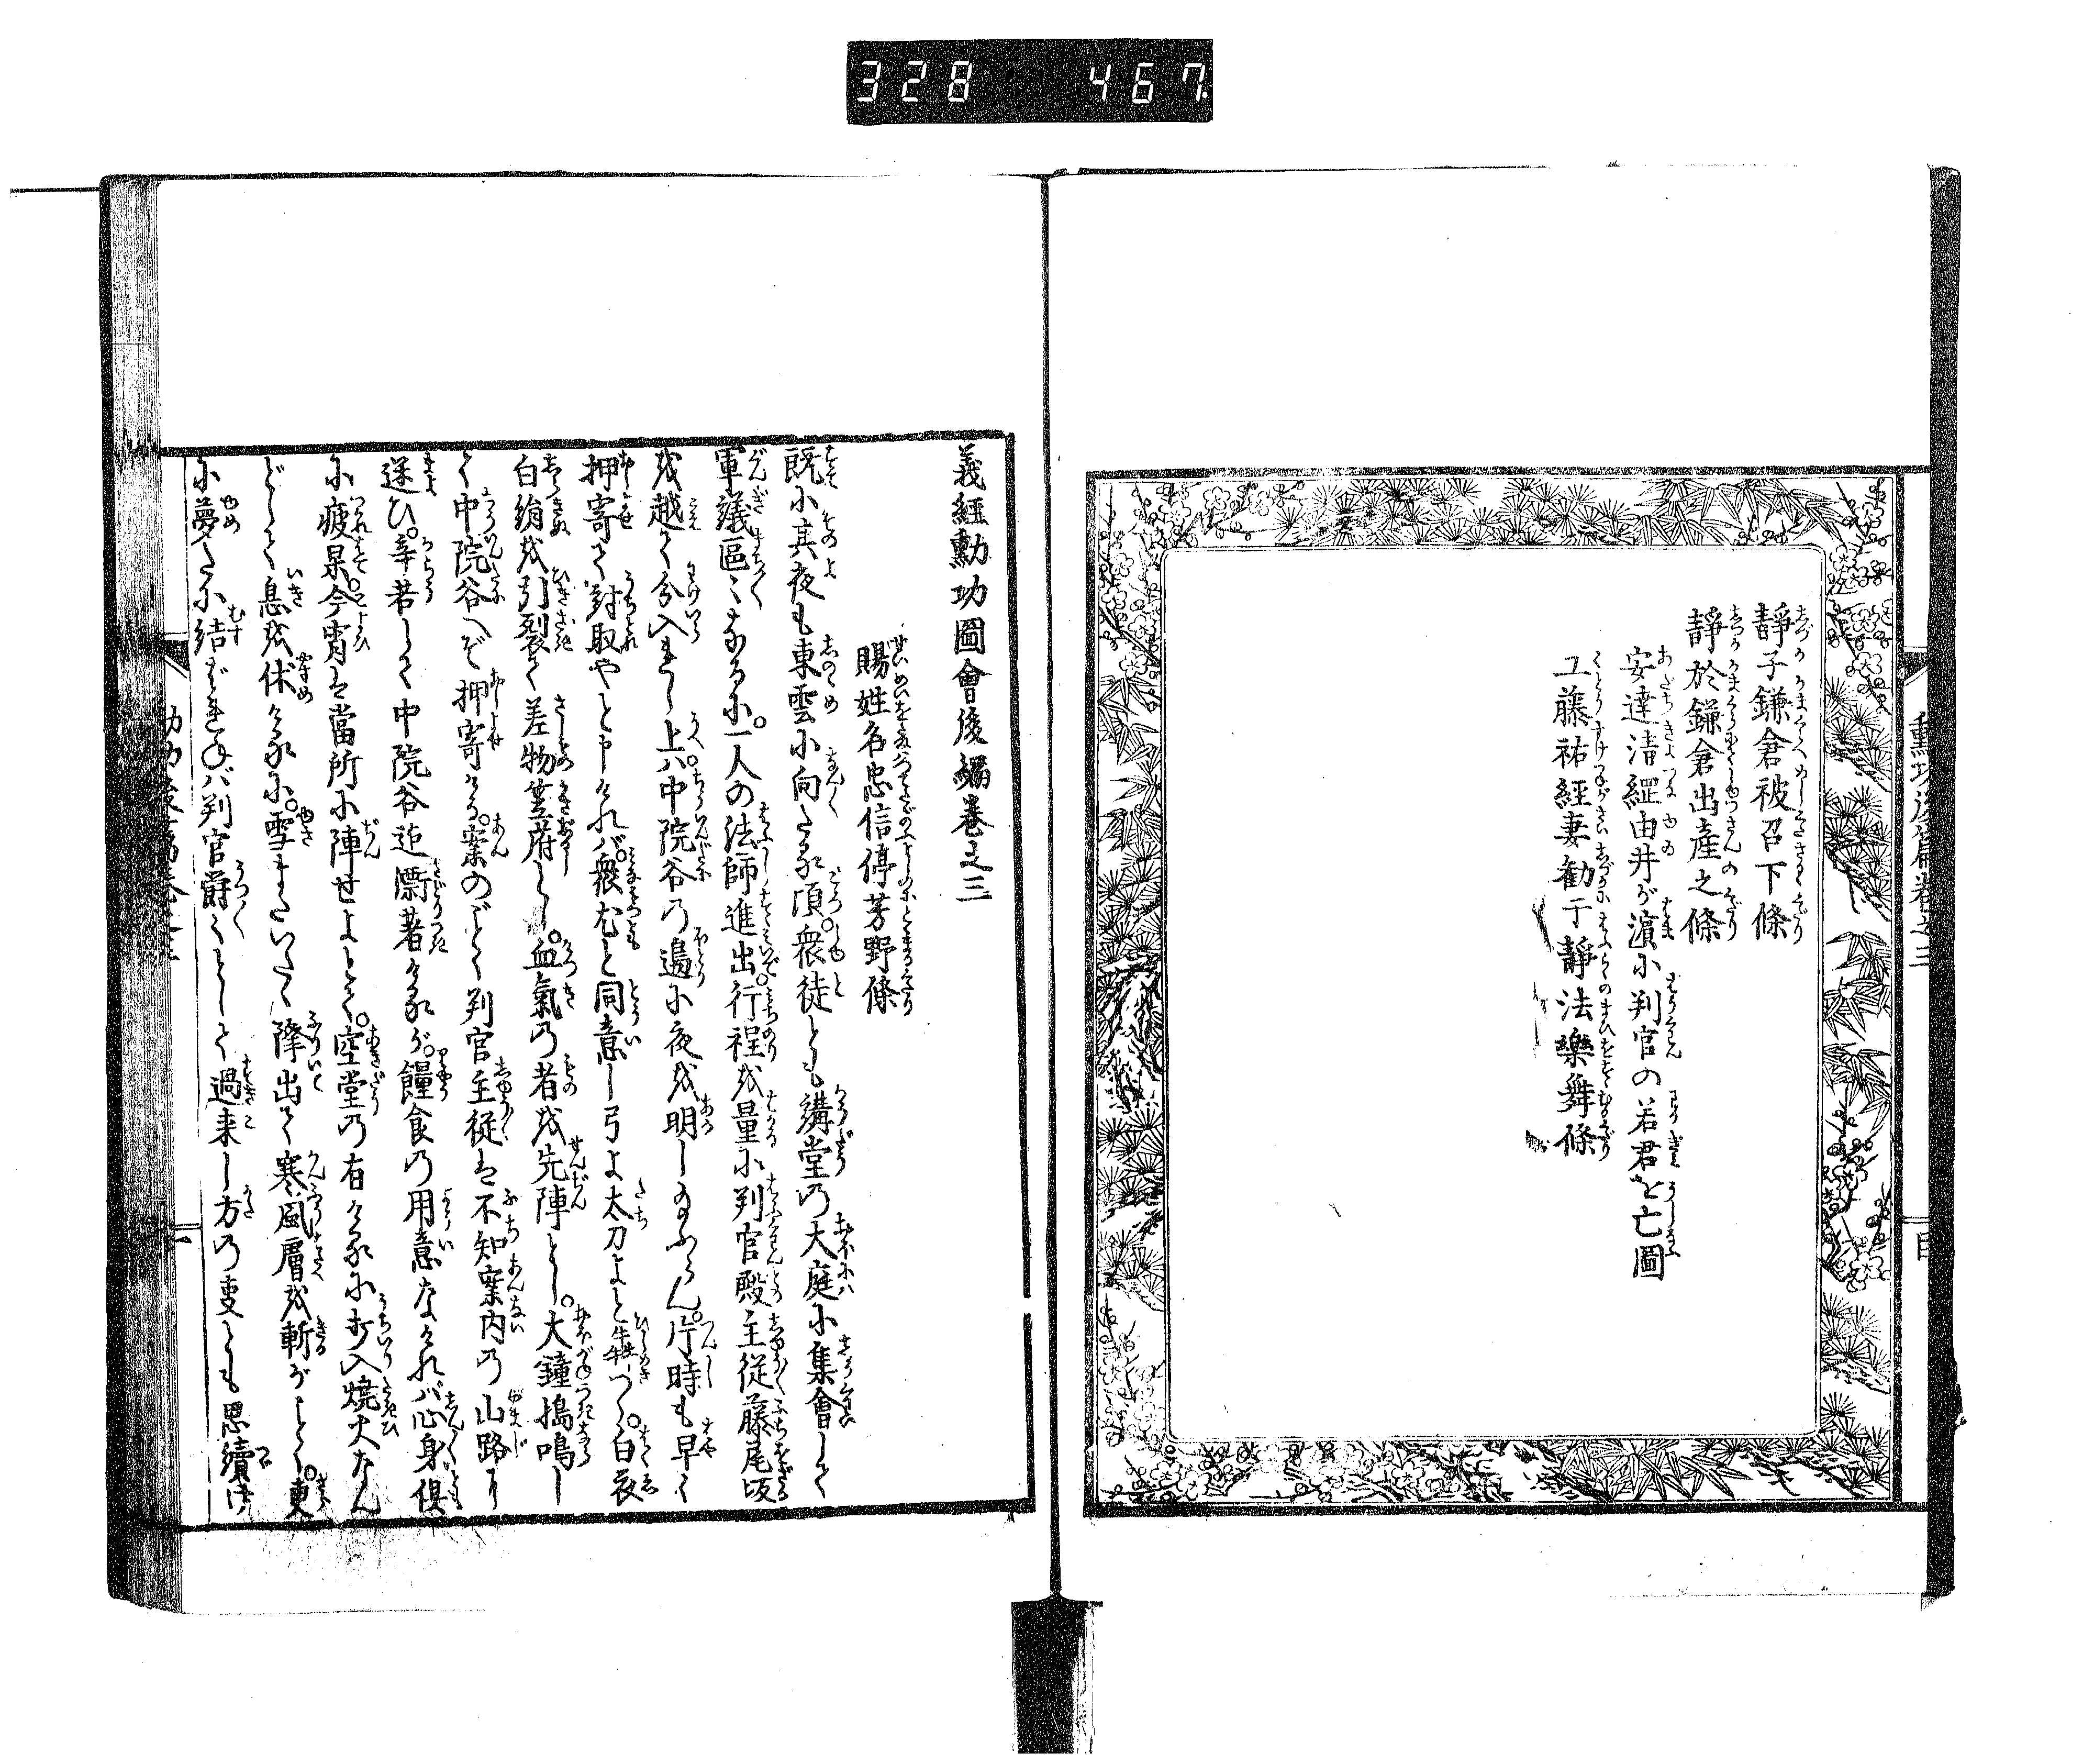 328 467
静子鎌倉被召下條
静於鎌倉出産之條
安達清経由井が濱に判官の若君を亡圖
工藤祐経妻勧于静法樂舞條
義経勲功圖會後編巻之三
賜姓名忠信停芳野條
既に其夜も東雲に向たる頃。衆徒ども講堂の大庭に集會して
軍議區〻なるに。一人の法師進出。行程を量に判官殿主従藤尾坂
を越て分入し上ハ。中院谷の邊に夜を明し給ふらん。片時も早く
押寄て討取やと申けれバ。衆徒尤と同意し弓よ太刀よと犇つく。白衣
白絹を引裂て差物笠符とし。血氣の者を先陣とし。大鐘搗鳴し
て中院谷へぞ押寄ける。案のごとく判官主従は不知案内の山路に
迷ひ。辛苦して中院谷迄漂着けるが。糧食の用意なけれバ心身倶
に疲果。今宵は當所に陣せよとて。空堂の有けるに歩入焼火なん
どして息を休めけるに。雪またいたく降出て寒風膚を斬がごとく。更
に夢だに結ばれねバ判官欝〻として過来し方の事ども思續け